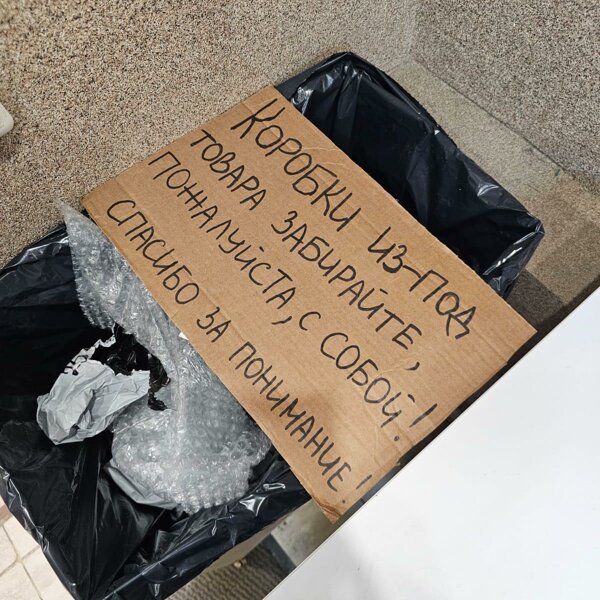 КОРОБКИ ИЗ-ПОД
ТОВАРА ЗАБИРАЙТЕ,
ПОЖАЛУЙСТА, С СОБОЙ!
СПАСИБО ЗА ПОНИМАНИЕ!